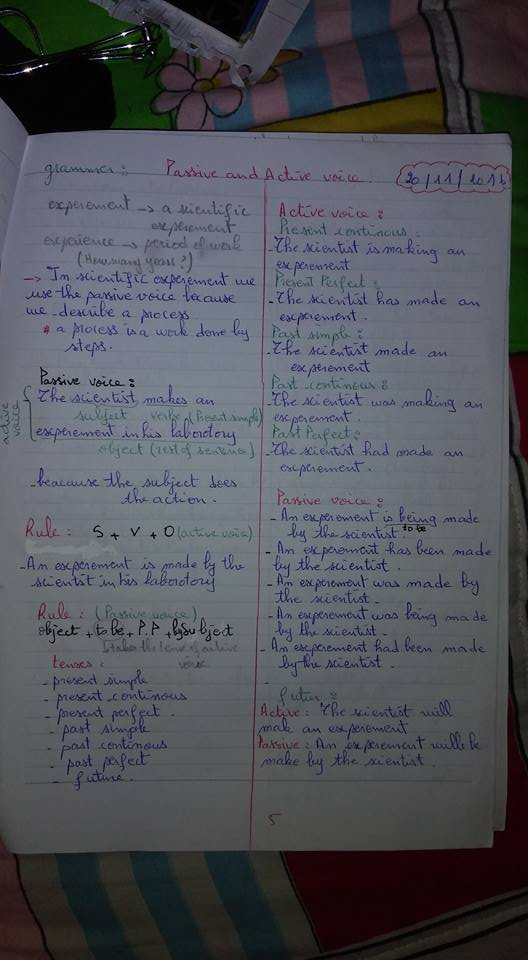 grammer: Passive and Active voice. 20/11/2016
experement → a scientific
experement
experience → period of work
(How many years?)
→ In scientific experement we
use the passive voice because
we describe a process
* a process is a work done by
steps.
Passive voice:
active voice
The scientist makes an
subject verbe (Present simple)
experement in his laboratory
object (rest of sentence)
- beacause the subject does
the action.
Rule: S + V + O (active voice)
- An experement is made by the
scientist in his laboratory
Rule: (Passive voice)
object + to be + P.P + by Subject
takes the tense of active
voice
tenses:
- present simple
- present continous
- present perfect.
- past simple
- past continous
- past perfect
- future.
Active voice:
Present continous:
- The scientist is making an
experement
Present Perfect:
- The scientist has made an
experement.
Past simple:
- The scientist made an
experement
Past continous:
- The scientist was making an
experement.
Past Perfect:
- The scientist had made an
experement.
Passive voice:
- An experement is being made
by the scientist to be
- An experement has been made
by the scientist.
- An experement was made by
the scientist.
- An experement was being made
by the scientist.
- An experement had been made
by the scientist.
-
futur:
Active: The scientist will
make an experement
Passive: An experement will be
make by the scientist.
5